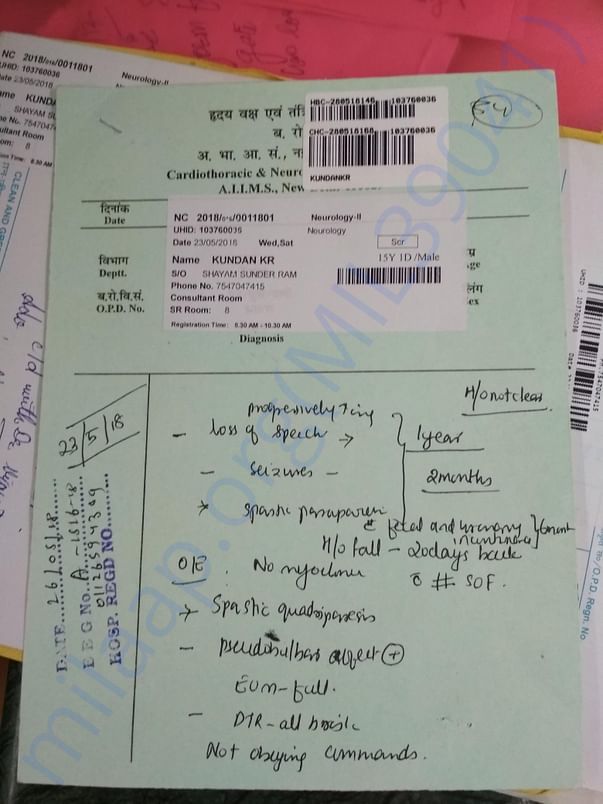 NC 2018/016/0011801
UHID: 103760036
Date 23/05/2018
Neurology-II
Name KUNDA
SHAYAM SU
Phone No. 7547047
Consultant Room
Room: 8
Time: 8.30 AM
CLEAN AND GREE
हृदय वक्ष एवं तंत्रि
ब. रो
अ. भा. आ. सं., न
Cardiothoracic & Neuro
A.I.I.M.S., New
HBC-280518146 103760036
CHC-280518168 103760036
KUNDANKR
दिनांक
Date
विभाग
Deptt.
ब.रो.वि.सं.
O.P.D. No.
NC 2018/016/0011801 Neurology-II
UHID: 103760036 Neurology
Date 23/05/2018 Wed,Sat
Name KUNDAN KR 15Y 1D /Male
S/O SHAYAM SUNDER RAM
Phone No. 7547047415
Consultant Room
SR Room: 8
Registration Time: 8.30 AM - 10.30 AM
Diagnosis
H/o not clear
23/5/18
progressively
- loss of speech → 1 year
- Seizures - 2 months
* Spastic paraparesis
c fecal and urinary incontinence
H/o fall - 20 days back
c # SOF.
O/E : No myoclonus
* Spastic quadriparesis
- pseudobulbar affect +
EOM - full.
- DTR - all brisk
Not obeying commands.
DATE 26/05/18
REG No. A-1516-18
01126594309
HOSP. REGD NO.
UHID : 103760036
/7547047415
milaap.org(MIL139041)